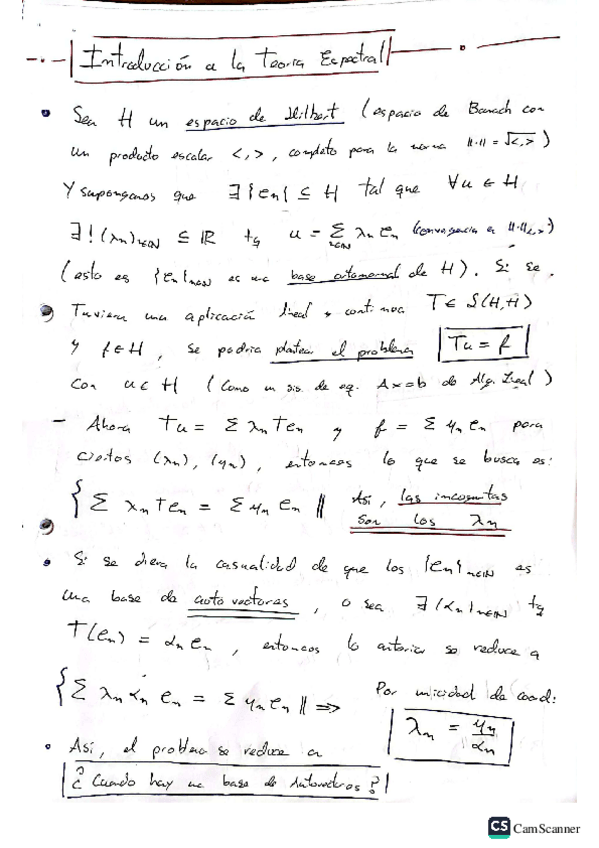 Introducción a la Teoria Espectral
• Sea H un espacio de Hilbert (espacio de Banach con
un producto escalar <,>, completo para la norma ||·|| = √<,>)
Y supongamos que ∃ {en} ⊆ H tal que ∀u ∈ H
∃! (λn)n∈IN ⊆ IR tq u = Σ n∈IN λn en (convergencia en ||·||<,>)
(esto es {en}n∈IN es una base ortonormal de H). Si se
Tuviera una aplicación lineal y continua T ∈ L(H,H)
y f ∈ H, se podría plantear el problema Tu = f
con u ∈ H (como un sis. de eq. Ax = b de Alg. Lineal)
– Ahora Tu = Σ λn Ten y f = Σ yn en para
ciertos (λn), (yn), entonces lo que se busca es:
{ Σ λn Ten = Σ yn en || Así, las incognitas
son los λn
• Si se diera la casualidad de que los {en}n∈IN es
una base de autovectores, o sea ∃ (αn)n∈IN tq
T(en) = αn en, entonces lo anterior se reduce a
{ Σ λn αn en = Σ yn en || ⇒ Por unicidad de coord:
λn = yn/αn
• Así, el problema se reduce a
¿Cuando hay una base de Autovectores?
CS CamScanner